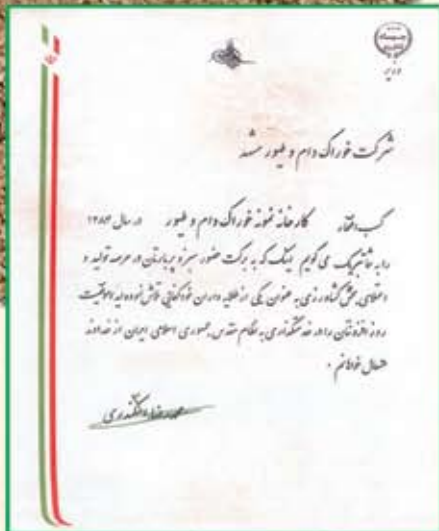 جهاد کشاورزی
وزیر
شرکت خوراک دام و طیور مشهد
کسب افتخار کارخانه نمونه خوراک دام و طیور در سال ۱۳۸۴
را به شما تبریک می گویم اینک که به برکت حضور سبز و پربارتان در عرصه تولید و
اعتلای بخش کشاورزی به عنوان یکی از طلایه داران خودکفایی تلاش نموده اید موفقیت
روز افزونتان را در خدمتگذاری به نظام مقدس جمهوری اسلامی ایران از خداوند
متعال خواهانم .
محمدرضا اسکندری